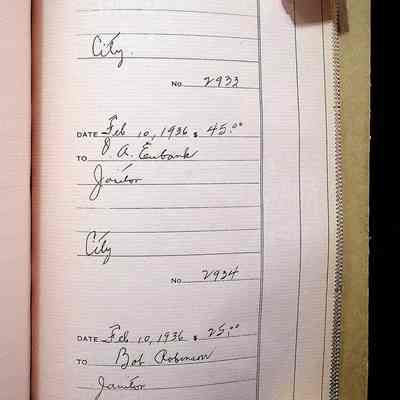 City.
No. 2933
DATE Feb 10, 1936 $ 45.00
TO J. A. Eubank
Janitor
City
No. 2934
DATE Feb 10, 1936 $ 25.00
TO Bob Robinson
Janitor